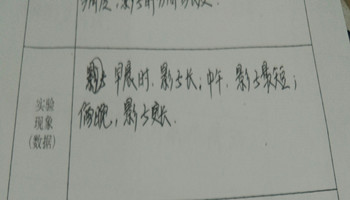 早晨时，影子长；中午，影子最短；
实验
现象
(数据)
傍晚，影子变长．